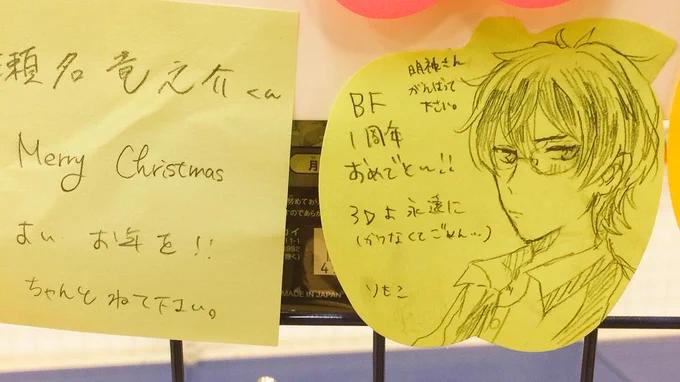 瀬名竜之介くん
Merry Christmas
よい お年を!!
ちゃんとねて下さい。
明神さん
がんばって
下さい。
BF
1周年
おめでと〜!!
3Dよ永遠に
(かつなくてごめん…)
りもこ
月
MADE IN JAPAN